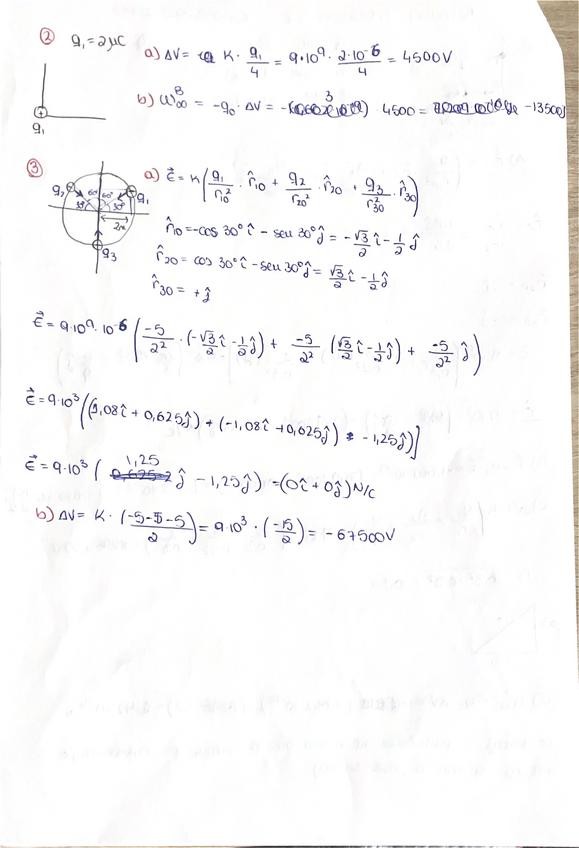 ② q₁ = 2μC
a) ΔV = K · q₁/4 = 9·10⁹ · 2·10⁻⁶/4 = 4500V
b) W∞ᴮ = -q₀ · ΔV = - 3 4500 = -13500J
q₁
③
q₂ 60° 60° q₁
30° 30°
2m
q₃
a) E⃗ = K (q₁/r₁₀² · r̂₁₀ + q₂/r₂₀² · r̂₂₀ + q₃/r₃₀² · r̂₃₀)
r̂₁₀ = -cos 30° î - sen 30° ĵ = -√3/2 î - 1/2 ĵ
r̂₂₀ = cos 30° î - sen 30° ĵ = √3/2 î - 1/2 ĵ
r̂₃₀ = +ĵ
E⃗ = 9·10⁹·10⁻⁶ (-5/2² · (-√3/2 î - 1/2 ĵ) + -5/2² (√3/2 î - 1/2 ĵ) + -5/2² ĵ)
E⃗ = 9·10³ ((1,08î + 0,625ĵ) + (-1,08î + 0,625ĵ) - 1,25ĵ)]
E⃗ = 9·10³ (1,25 ĵ - 1,25ĵ) = (0î + 0ĵ) N/C
b) ΔV = K · (-5-5-5/2) = 9·10³ · (-15/2) = -67500V